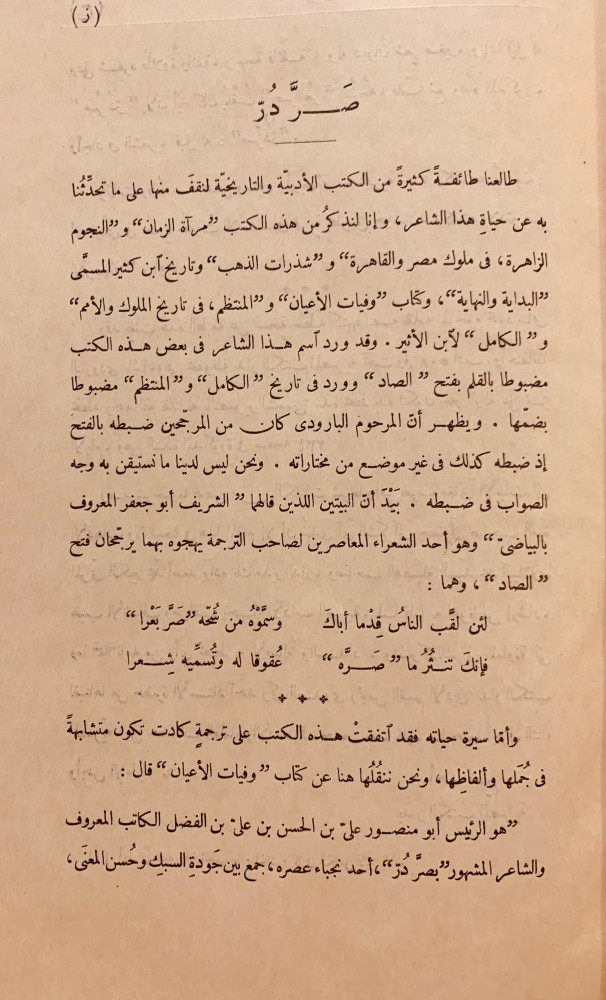 (ز)
صَرَّ دُرّ
طالعنا طائفةً كثيرةً من الكتب الأدبيّة والتاريخيّة لنقفَ منها على ما تحدِّثُنا
به عن حياةِ هذا الشاعر، وإنا لنذكرُ من هذه الكتب "مرآة الزمان" و"النجوم
الزاهرة، فى ملوك مصر والقاهرة" و"شذرات الذهب" وتاريخ ٱبن كثير المسمَّى
"البداية والنهاية"، وكتاب "وفيات الأعيان" و"المنتظم، فى تاريخ الملوك والأمم"
و"الكامل" لٱبن الأثير. وقد ورد ٱسم هذا الشاعر فى بعض هذه الكتب
مضبوطا بالقلم بفتح "الصاد" وورد فى تاريخ "الكامل" و"المنتظم" مضبوطا
بضمّها. ويظهر أنّ المرحوم البارودى كان من المرجّحين ضبطه بالفتح
إذ ضبطه كذلك فى غير موضع من مختاراته. ونحن ليس لدينا ما نستيقن به وجه
الصواب فى ضبطه. بَيْدَ أنّ البيتين اللذين قالهما "الشريف أبو جعفر المعروف
بالبياضىّ" وهو أحد الشعراء المعاصرين لصاحب الترجمة يهجوه بهما يرجّحان فتح
"الصاد"، وهما:
لئن لقَّب الناسُ قِدْما أباكَ وسمَّوْهُ من شُحّه "صَرَّ بَعْرا"
فإنكَ تنثُرُ ما "صَرَّه" عُقوقا له وتُسمِّيه شِعرا
وأمّا سيرة حياته فقد ٱتفقتْ هذه الكتب على ترجمةٍ كادت تكون متشابهةً
فى جُمَلها وألفاظِها، ونحن ننقُلُها هنا عن كتاب "وفيات الأعيان" قال:
"هو الرئيس أبو منصور علىّ بن الحسن بن علىّ بن الفضل الكاتب المعروف
والشاعر المشهور "بصرَّ دُرّ"، أحد نجباء عصره، جمع بين جَودةِ السبكِ وحُسن المعنَى،